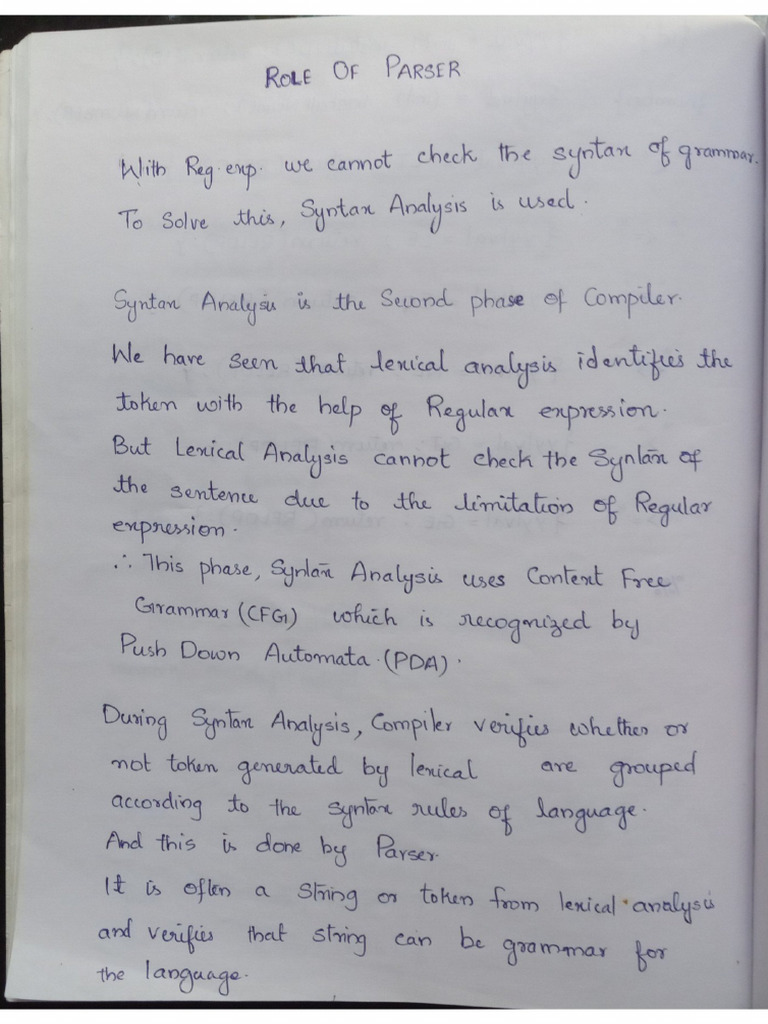 ROLE OF PARSER
With Reg. exp. we cannot check the syntax of grammar.
To Solve this, Syntax Analysis is used.
Syntax Analysis is the Second phase of Compiler.
We have seen that lexical analysis identifies the
token with the help of Regular expression.
But Lexical Analysis cannot check the Syntax of
the sentence due to the limitation of Regular
expression.
∴ This phase, Syntax Analysis uses Context Free
Grammar (CFG) which is recognized by
Push Down Automata (PDA).
During Syntax Analysis, Compiler verifies whether or
not token generated by lexical are grouped
according to the syntax rules of language.
And this is done by Parser.
It is often a String or token from lexical analysis
and verifies that string can be grammar for
the language.